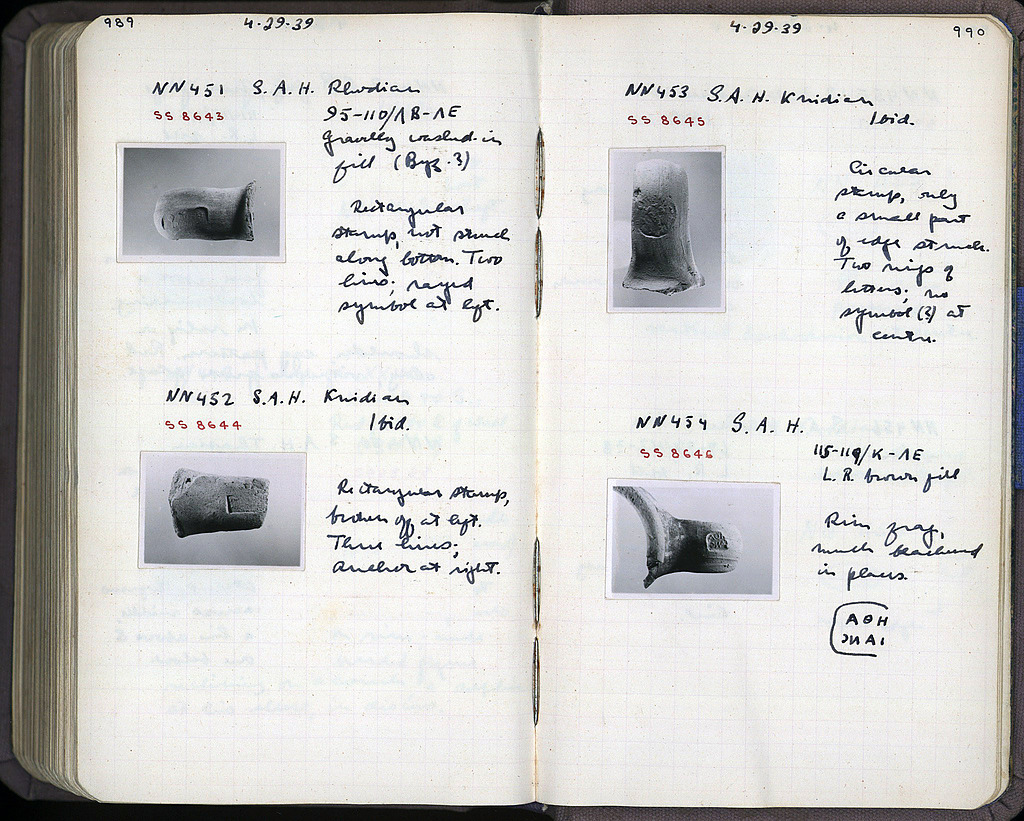 989
4-29-39
NN451 S.A.H. Rhodian
SS 8643
95-110/ΛB-ΛE
Gravelly washed-in
fill (Byz.?)
Rectangular
stamp, not struck
along bottom. Two
lines; rayed
symbol at left.
NN452 S.A.H. Knidian
SS 8644
Ibid.
Rectangular stamp,
broken off at left.
Three lines;
anchor at right.
4-29-39
990
NN453 S.A.H. Knidian
SS 8645
Ibid.
Circular
stamp, only
a small part
of edge struck.
Two rings of
letters; no
symbol (?) at
centre.
NN454 S.A.H.
SS 8646
115-119/K-ΛE
L.R. brown fill
Rim frag,
much blackened
in places.
ΑΘΗ
ΙΑΙ